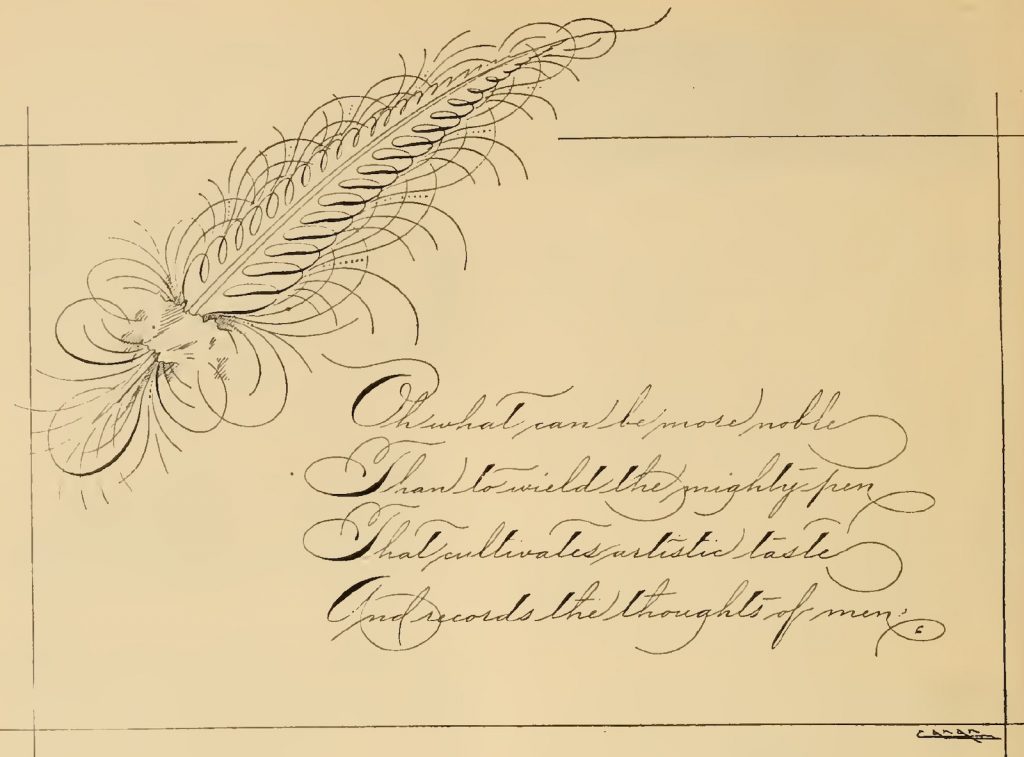 Oh what can be more noble
Than to wield the mighty pen
That cultivates artistic taste
And records the thoughts of men.
CANAN